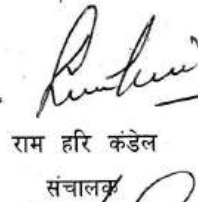 राम हरि कंडेल
संचालक